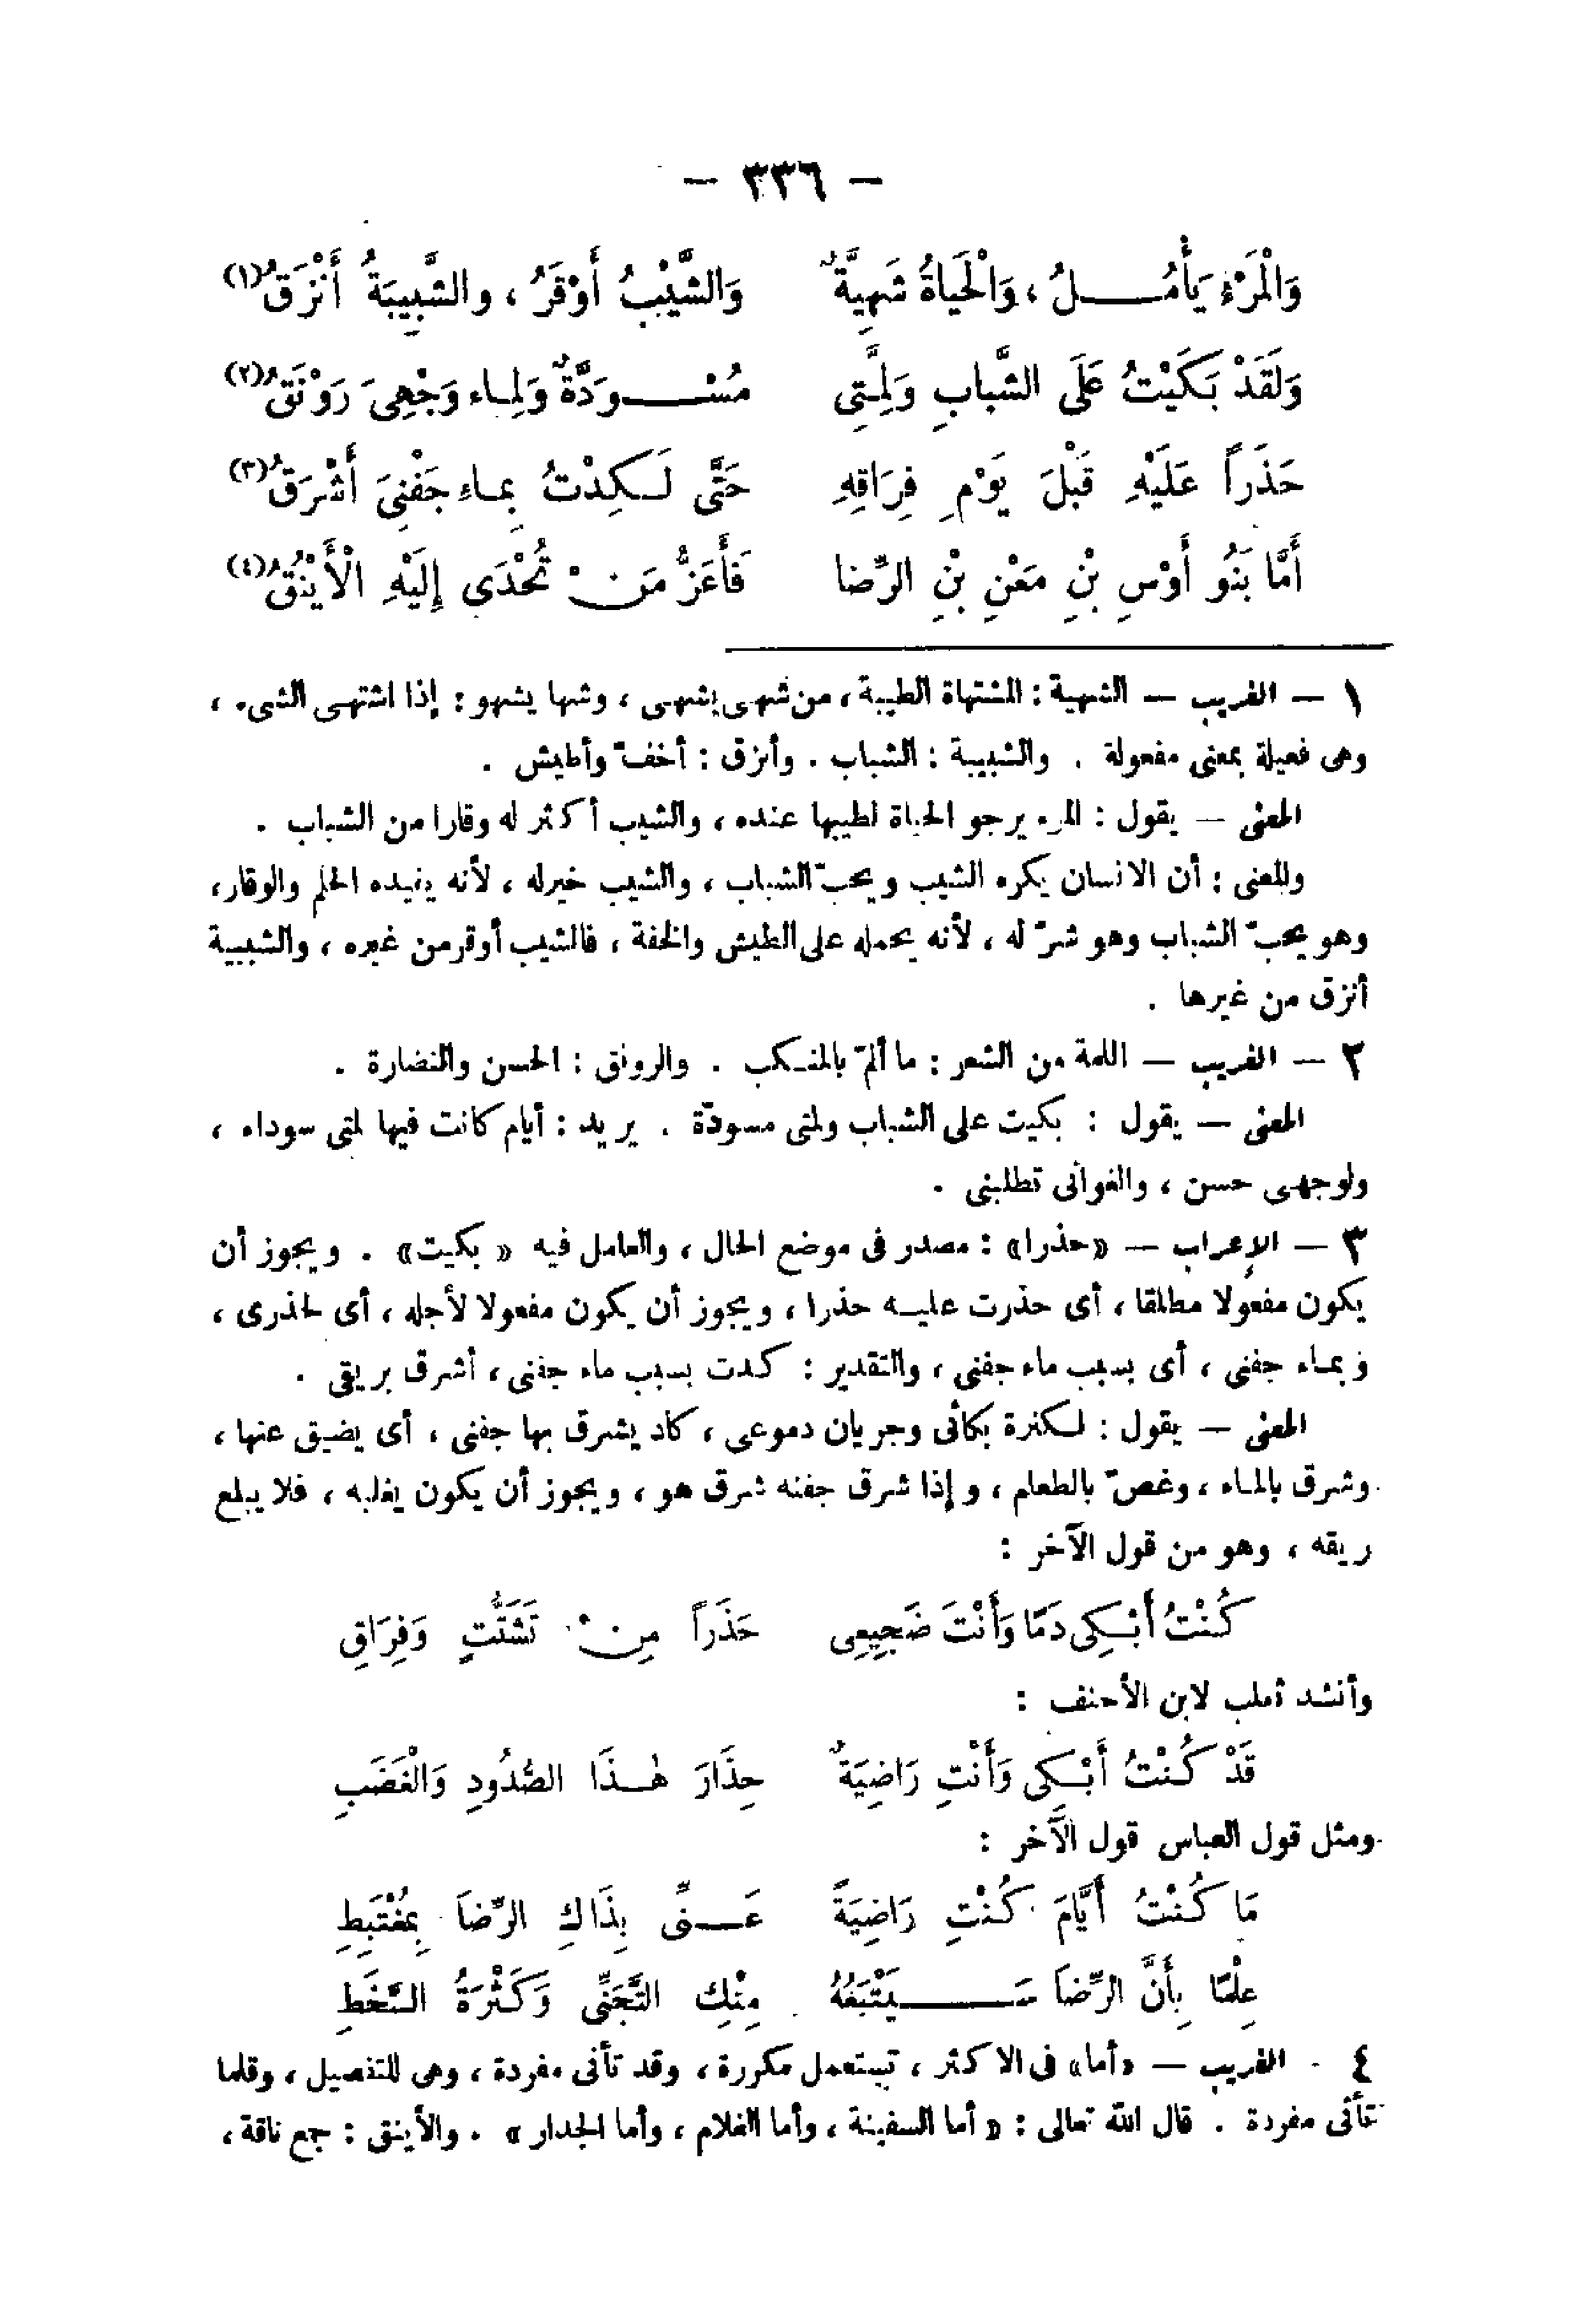 - ٣٣٦ -
وَالْمَرْءُ يَأْمُــلُ ، وَالْحَيَاةُ شَهِيَّةٌ وَالشَّيْبُ أَوْقَرُ ، والشَّبِيبَةُ أَنْزَقُ(١)
وَلَقَدْ بَكَيْتُ عَلَى الشَّبابِ وَلِمَّتِى مُسْــوَدَّةٌ وَلِمــاء وَجْهِىَ رَوْنَقُ(٢)
حَذَراً عَلَيْهِ قَبْلَ يَوْمِ فِرَاقِهِ حَتَّى لَــكِدْتُ بِمـاءِ جَفْنِىَ أَشْرَقُ(٣)
أَمَّا بَنُو أَوْسِ بْنِ مَعْنِ بْنِ الرِّضا فَأَعَزُّ مَنْ تُحْدَى إِلَيْهِ الْأَيْنُقُ(٤)
١ — الغريب — الشهية : المشتهاة الطيبة ، من شهى يشهى ، وشها يشهو : إذا اشتهى الشىء ،
وهى فعيلة بمعنى مفعولة . والشبيبة : الشباب . وأنزق : أخفّ وأطيش .
المعنى — يقول : المرء يرجو الحياة لطيبها عنده ، والشيب أكثر له وقارا من الشباب .
والمعنى : أن الانسان يكره الشيب ويحبّ الشباب ، والشيب خير له ، لأنه يفيده الحلم والوقار،
وهو يحبّ الشباب وهو شرّ له ، لأنه يحمله على الطيش والخفة ، فالشيب أوقر من غيره ، والشبيبة
أنزق من غيرها .
٢ — الغريب — اللمة من الشعر : ما ألمّ بالمنـكب . والرونق : الحسن والنضارة .
المعنى — يقول : بكيت على الشباب ولمتى مسودّة . يريد : أيام كانت فيها لمتى سوداء ،
ولوجهى حسن ، والغوانى تطلبنى .
٣ — الإعراب — «حذرا» : مصدر فى موضع الحال ، والعامل فيه « بكيت» . ويجوز أن
يكون مفعولا مطلقا ، أى حذرت عليــه حذرا ، ويجوز أن يكون مفعولا لأجله ، أى لحذرى ،
وبمـاء جفنى ، أى بسبب ماء جفنى ، والتقدير : كدت بسبب ماء جفنى ، أشرق بريقى .
المعنى — يقول : لـكثرة بكائى وجريان دموعى ، كاد يشرق بها جفنى ، أى يضيق عنها ،
وشرق بالمـاء ، وغصّ بالطعام ، وإذا شرق جفنه شرق هو ، ويجوز أن يكون يغلبه ، فلا يبلع
ريقه ، وهو من قول الآخر :
كُنْتُ أَبْـكِى دَمًا وَأَنْتَ ضَجِيعِى حَذَراً مِنْ تَشَتُّتٍ وَفِرَاقِ
وأنشد ثعلب لابن الأحنف :
قَدْ كُنْتُ أَبْـكِى وَأَنْتِ رَاضِيَةٌ حِذَارَ هٰـذَا الصُّدُودِ وَالْغَضَبِ
ومثل قول العباس قول الآخر :
مَا كُنْتُ أَيَّامَ كُنْتِ رَاضِيَةً عَــنِّى بِذَاكِ الرِّضاَ بِمُغْتَبِطِ
عِلْمًا بِأَنَّ الرِّضاَ سَــيَتْبَعُهُ مِنْكِ التَّجَنِّى وَكَثْرَةُ السَّخَطِ
٤ - الغريب — «أما» فى الاكثر ، تستعمل مكررة ، وقد تأتى مفردة ، وهى للتفصيل ، وقلما
تأتى مفردة . قال الله تعالى : « أما السفينة ، وأما الغلام ، وأما الجدار » . والأينق : جمع ناقة ،